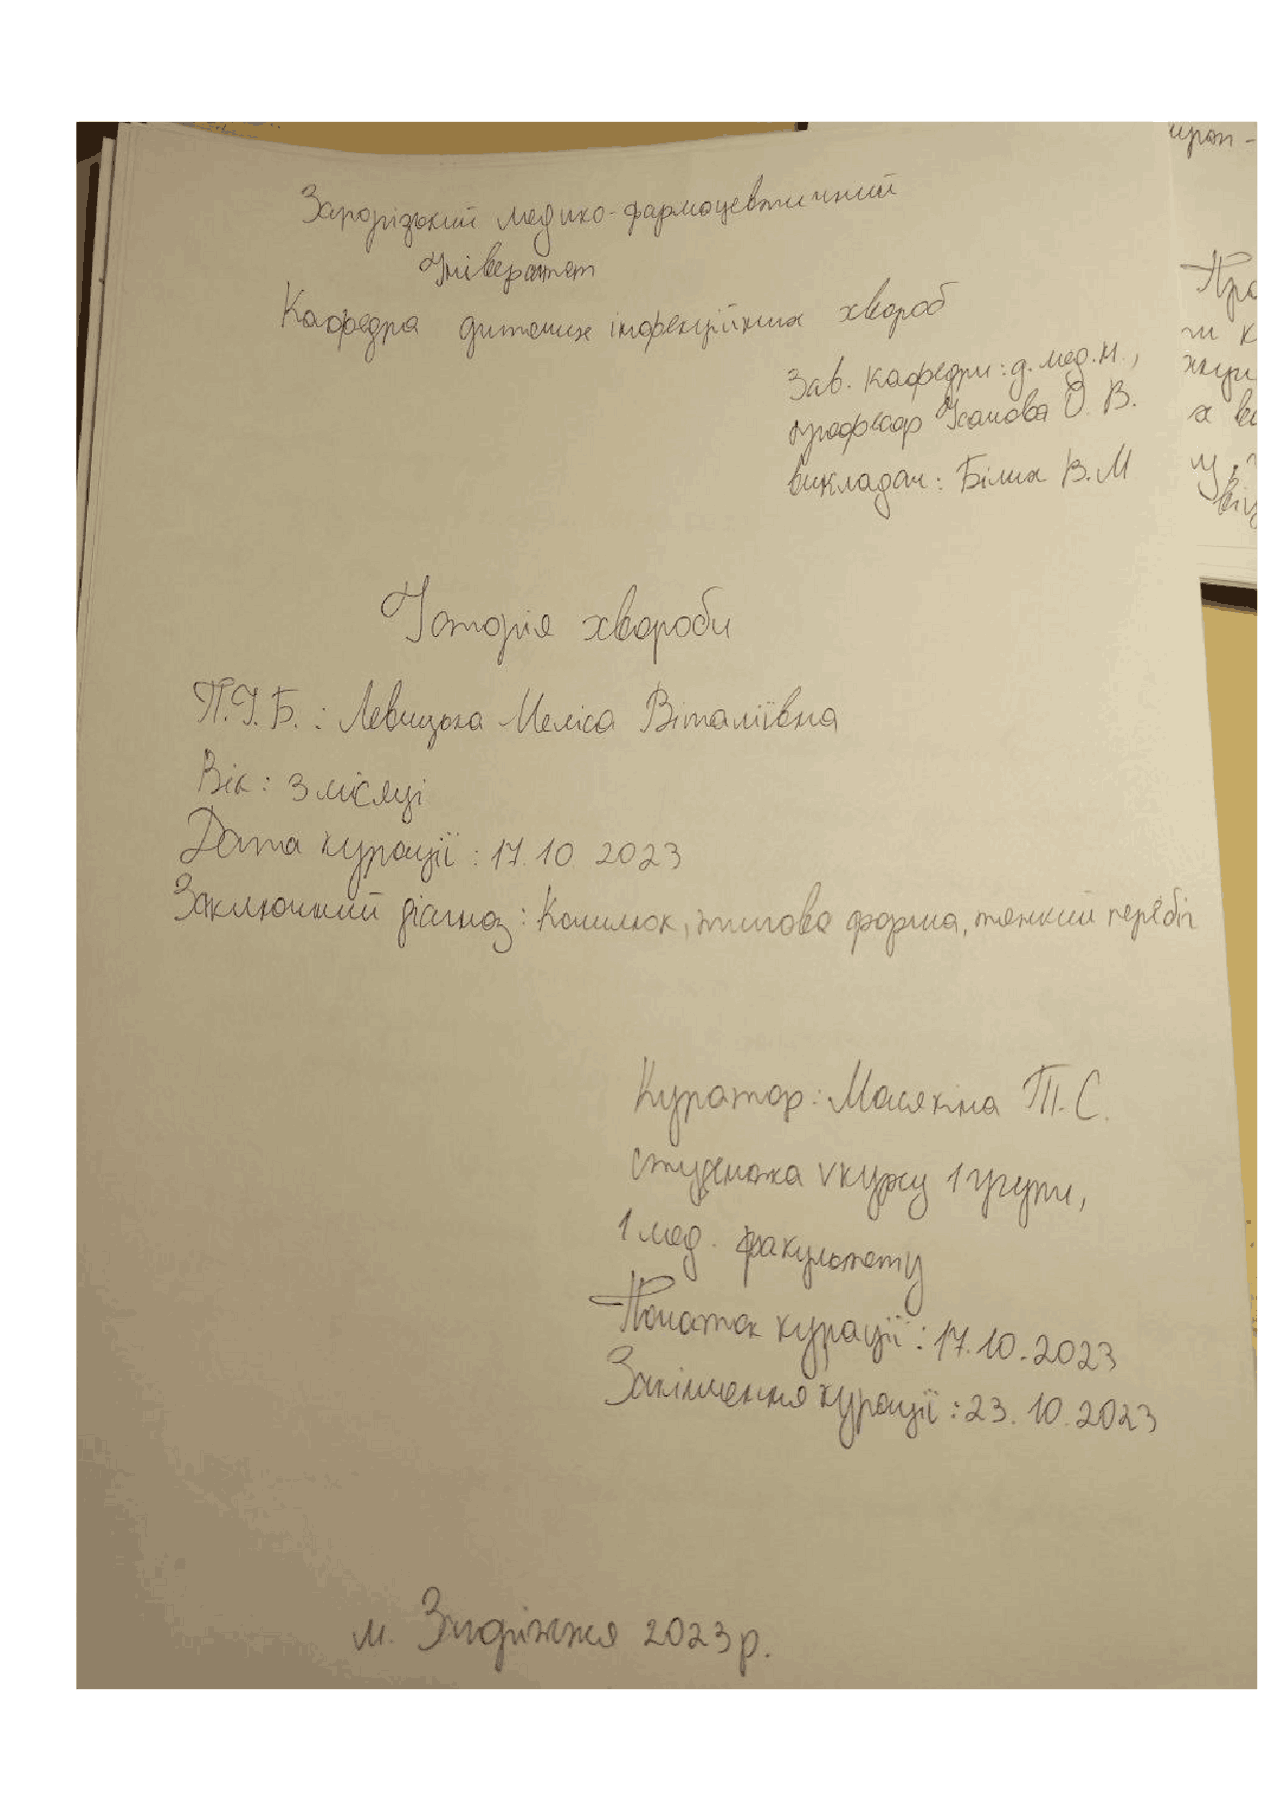 Запорізький медико-фармацевтичний
Університет
Кафедра дитячих інфекційних хвороб
Зав. кафедри: д. мед. н.,
професор Усачова О. В.
викладач: Білих В. М
Історія хвороби
П.І.Б.: Левицька Меліса Віталіївна
Вік: 3 місяці
Дата курації: 17.10.2023
Заключний діагноз: Кашлюк, типова форма, тяжкий перебіг
Куратор: Масякіна Т. С.
студентка V курсу 1 групи,
1 мед. факультету
Початок курації: 17.10.2023
Закінчення курації: 23.10.2023
м. Запоріжжя 2023 р.